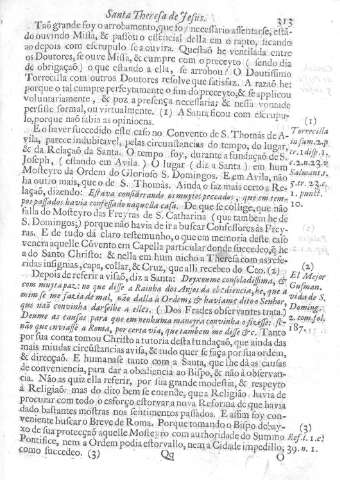 Santa Theresa de Jesus. 313
Taõ grande foy o arrobamento, que foy necessario assentarse, està-
do ouvindo Missa, & passou o essencial della em o rapto, ficando
ao depois com escrupulo se a ouvira. Questaõ he ventilada entre
os Doutores, se ouve Missa, & cumpre com o preceyto (sendo dia
de obrigaçaõ) o que estando a ella, se arrobou? O Doutissimo
Torrecilla com outros Doutores resolve que satisfaz. A razaõ he:
porque o tal cumpre perfeytamente o fim do preceyto, & se applicou
voluntariamente, & poz a presença necessaria; & nessa vontade
persiste formal, ou virtualmente. (1) A Santa ficou com escrupu-
lo, porque naõ sabia as opinioens.
E o haver succedido este caso no Convento de S. Thomàs de A-
vila, parece indubitavel, pelas circunstancias do tempo, do lugar,
& da Relaçaõ da Santa. O tempo foy, durante a fundaçaõ de S.
Joseph, (estando em Avila.) O lugar (diz a Santa) em hum
Mosteyro da Ordem do Glorioso S. Domingos. E em Avila, naõ
ha outro mais, que o de S. Thomàs. Ainda o faz mais certo a Re-
laçaõ, dizendo: Estava considerando os muytos peccados, que em tem-
pos passados havia confessado naquella casa. De que se collige, que naõ
falla do Mosteyro das Freyras de S. Catharina (que tambem he de
S. Domingos;) porque naõ havia de ir a buscar Confessores às Frey-
ras. E de tudo dà claro testemunho, o que em memoria deste caso
venera aquelle Convento em Capella particular donde succedeo, & he
a do Santo Christo: & nella em hum nicho a Theresa com as refe-
ridas insignias, capa, collar, & Cruz, que alli recebeo do Ceo. (2)
Depois de referir a visaõ, diz a Santa: Deyxeume consoladissima, &
com muyta paz: no que disse a Rainha dos Anjos da obediencia, he, que a
mim se me fazia de mal, naõ dalla à Ordem; & haviame dito o Senhor,
que naõ convinha darselhe a elles. (Dos Frades observantes trata.)
Deume as causas para que em nenhuma maneyra convinha o fizesse: se-
naõ que enviasse a Roma, por certa via, que tambem me disse &c. Tanto
por sua conta tomou Christo a tutoria desta fundaçaõ, que ainda das
mais miudas circunstancias avisa, & tudo quer se faça por sua ordem,
& direcçaõ. E humanase tanto com a Santa, que lhe dà as causas
de conveniencia, para dar a obediencia ao Bispo, & naõ à observan-
cia. Naõ as quiz ella referir, por sua grande modestia, & respeyto
à Religiaõ: mas do dito bem se entende, que a Religiaõ havia de
procurar com todo o esforço estorvar a nova Reforma de que havia
dado bastantes mostras nos sentimentos passados. E assim foy con-
veniente buscar o Breve de Roma. Porque tomando o Bispo debay-
xo de sua protecçaõ aquelle Mosteyro com authoridade do Summo
Pontifice, nem a Ordem podia estorvallo, nem a Cidade impedillo,
como succedeo. (3)
Qq O
(1)
Torrecilla
10.
(2)
Gusman.
vida de S.
Domingo,
187.
(3)
Ref. l. 1. c.
39. n. 1.